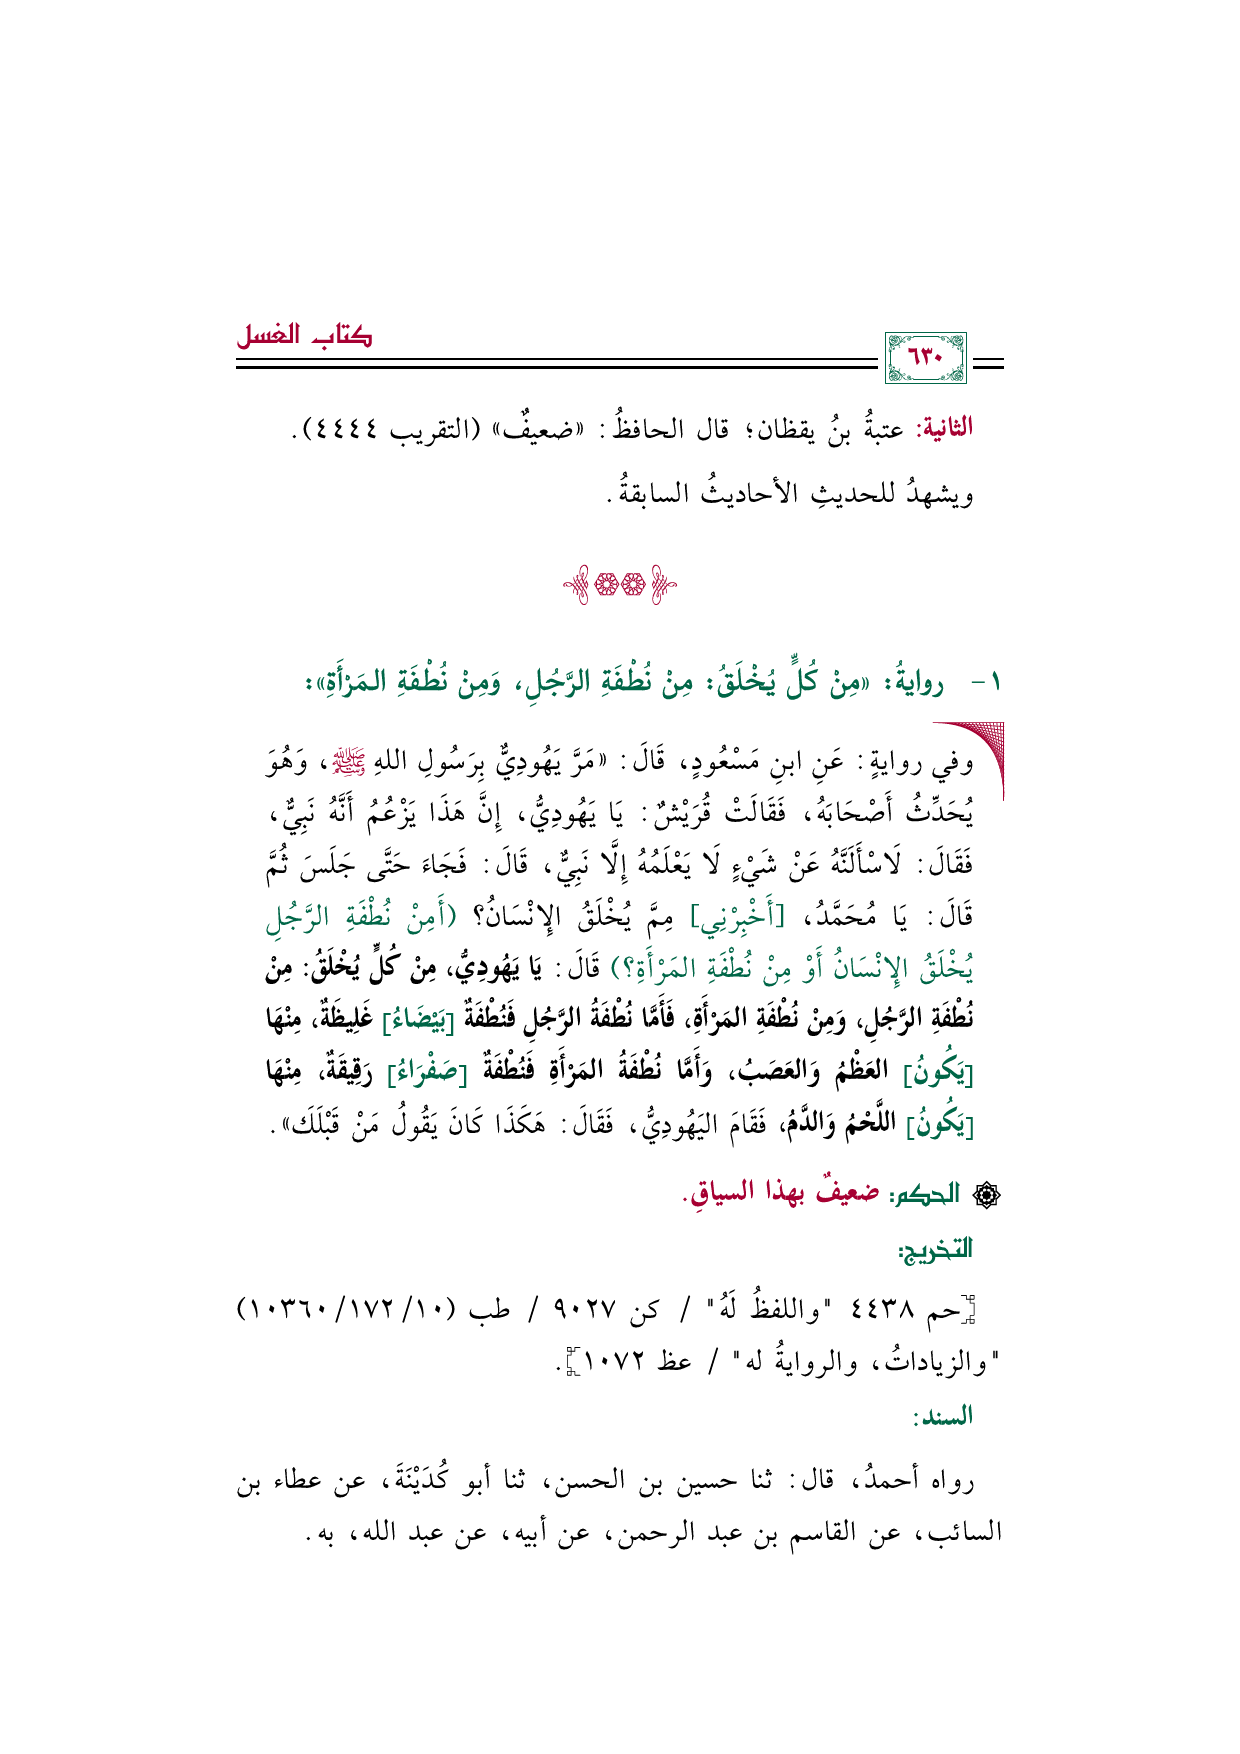 كتاب الغسل
٦٣٠
الثانية: عتبةُ بنُ يقظان؛ قال الحافظُ: «ضعيفٌ» (التقريب ٤٤٤٤).
ويشهدُ للحديثِ الأحاديثُ السابقةُ.
١- روايةُ: «مِنْ كُلٍّ يُخْلَقُ: مِنْ نُطْفَةِ الرَّجُلِ، وَمِنْ نُطْفَةِ المَرْأَةِ»:
وفي روايةٍ: عَنِ ابنِ مَسْعُودٍ، قَالَ: «مَرَّ يَهُودِيٌّ بِرَسُولِ اللهِ ﷺ، وَهُوَ
يُحَدِّثُ أَصْحَابَهُ، فَقَالَتْ قُرَيْشٌ: يَا يَهُودِيُّ، إِنَّ هَذَا يَزْعُمُ أَنَّهُ نَبِيٌّ،
فَقَالَ: لَاسْأَلَنَّهُ عَنْ شَيْءٍ لَا يَعْلَمُهُ إِلَّا نَبِيٌّ، قَالَ: فَجَاءَ حَتَّى جَلَسَ ثُمَّ
قَالَ: يَا مُحَمَّدُ، [أَخْبِرْنِي] مِمَّ يُخْلَقُ الإِنْسَانُ؟ (أَمِنْ نُطْفَةِ الرَّجُلِ
يُخْلَقُ الإِنْسَانُ أَوْ مِنْ نُطْفَةِ المَرْأَةِ؟) قَالَ: يَا يَهُودِيُّ، مِنْ كُلٍّ يُخْلَقُ: مِنْ
نُطْفَةِ الرَّجُلِ، وَمِنْ نُطْفَةِ المَرْأَةِ، فَأَمَّا نُطْفَةُ الرَّجُلِ فَنُطْفَةٌ [بَيْضَاءُ] غَلِيظَةٌ، مِنْهَا
[يَكُونُ] العَظْمُ وَالعَصَبُ، وَأَمَّا نُطْفَةُ المَرْأَةِ فَنُطْفَةٌ [صَفْرَاءُ] رَقِيقَةٌ، مِنْهَا
[يَكُونُ] اللَّحْمُ وَالدَّمُ، فَقَامَ اليَهُودِيُّ، فَقَالَ: هَكَذَا كَانَ يَقُولُ مَنْ قَبْلَكَ».
الحكم: ضعيفٌ بهذا السياقِ.
التخريج:
[حم ٤٤٣٨ "واللفظُ لَهُ" / كن ٩٠٢٧ / طب (١٠/ ١٧٢/ ١٠٣٦٠)
"والزياداتُ، والروايةُ له" / عظ ١٠٧٢].
السند:
رواه أحمدُ، قال: ثنا حسين بن الحسن، ثنا أبو كُدَيْنَةَ، عن عطاء بن
السائب، عن القاسم بن عبد الرحمن، عن أبيه، عن عبد الله، به.